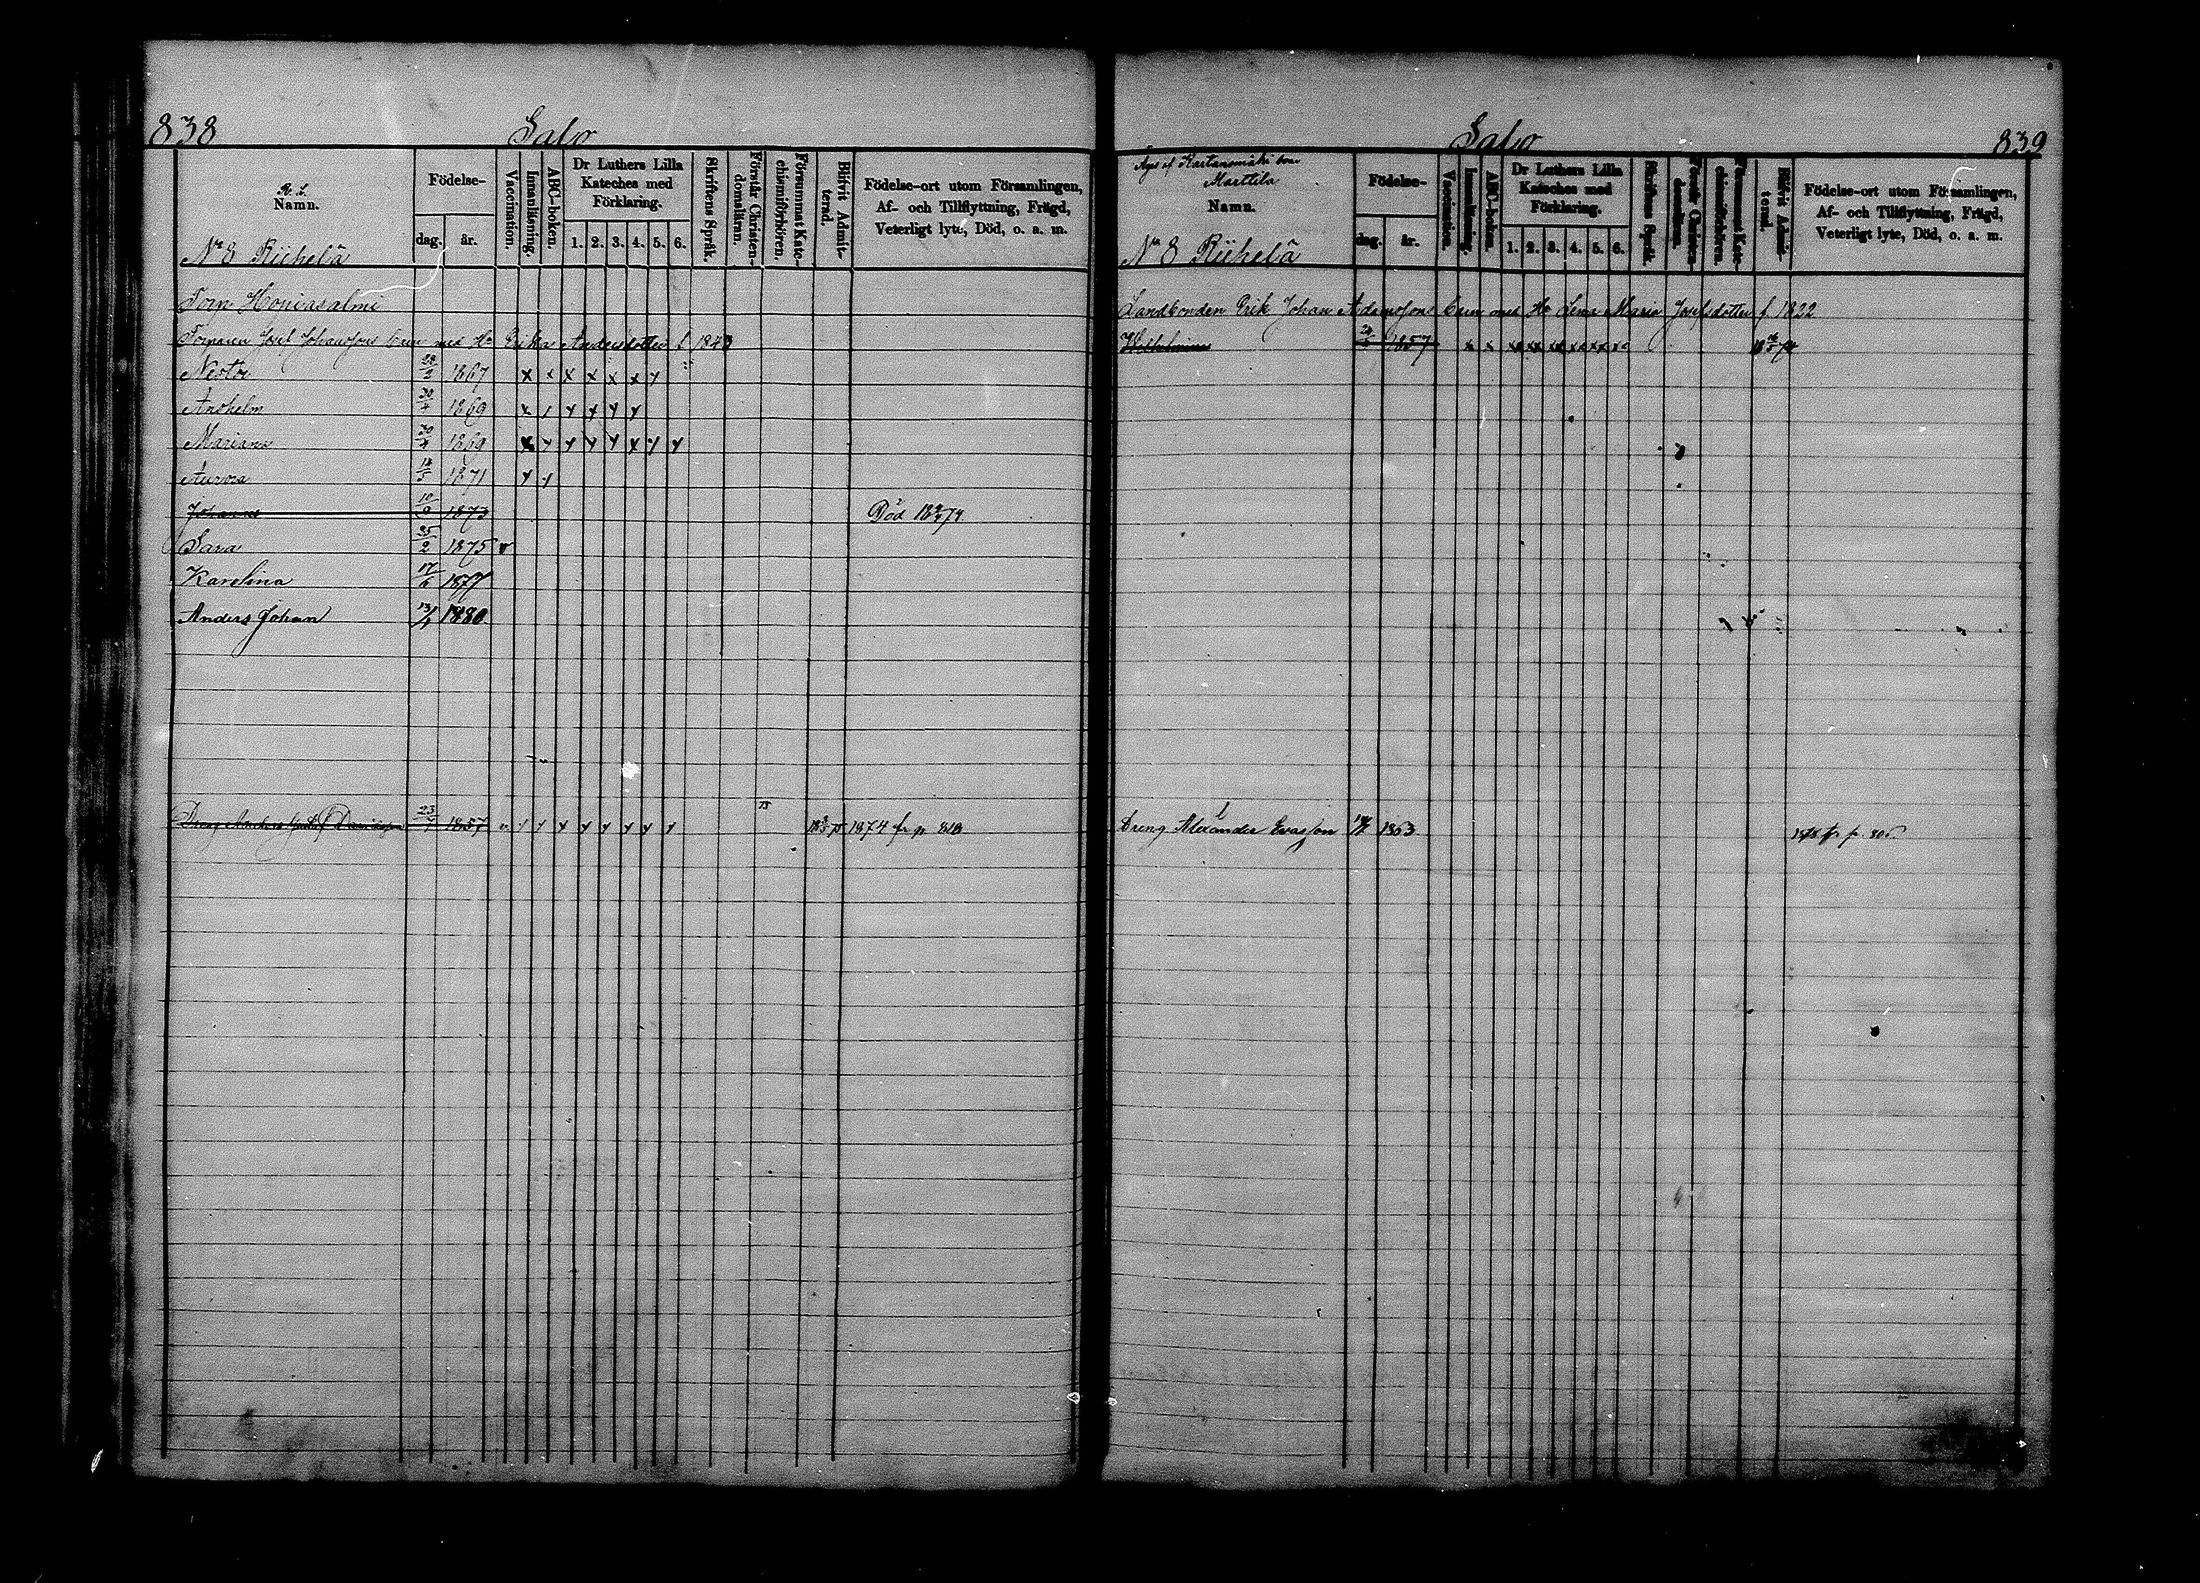 838 Salo
R. S.
Namn.
Födelse-
dag. år.
Vaccination.
Innanläsning.
ABC-boken.
Dr Luthers Lilla
Kateches med
Förklaring.
1. 2. 3. 4. 5. 6.
Skriftens Språk.
Förstår Christen-
domsläran.
Försummat Kate-
chismiförhören.
Blifvit Admit-
terad.
Födelse-ort utom Församlingen,
Af- och Tillflyttning, Frägd,
Veterligt lyte, Död, o. a. m.
No 8 Riihelä
Torp
Josef Johanssons barn med Hu Erika Andersdotter f. 1843
Nestor 28/2 1867 x x x x x x x
Anshelm 30/4 1869 x x x x x x
Mariana 30/4 1869 x x x x x x x x
Aurora 18/5 1871 x x
Johannes 10/9 1873 Död
Sara 25/2 1875 v
Karolina 17/6 1877
Anders Johan 13/4 1880
Dreng Anders Gustaf Davidsson 23/4 1857 v x x x x x x x x 1874 fr p 818
Salo 839
Marttila
Namn.
Födelse-
dag. år.
Vaccination.
Innanläsning.
ABC-boken.
Dr Luthers Lilla
Kateches med
Förklaring.
1. 2. 3. 4. 5. 6.
Skriftens Språk.
Förstår Christen-
domsläran.
Försummat Kate-
chismiförhören.
Blifvit Admit-
terad.
Födelse-ort utom Församlingen,
Af- och Tillflyttning, Frägd,
Veterligt lyte, Död, o. a. m.
No 8 Riihelä
Landbonden Erik Johan Adamssons barn med Hu Lena Maria Josefsdotter f. 1822
Wilhelmina 1857 x x x x x x x x
Dreng Alexander Evasson 1863